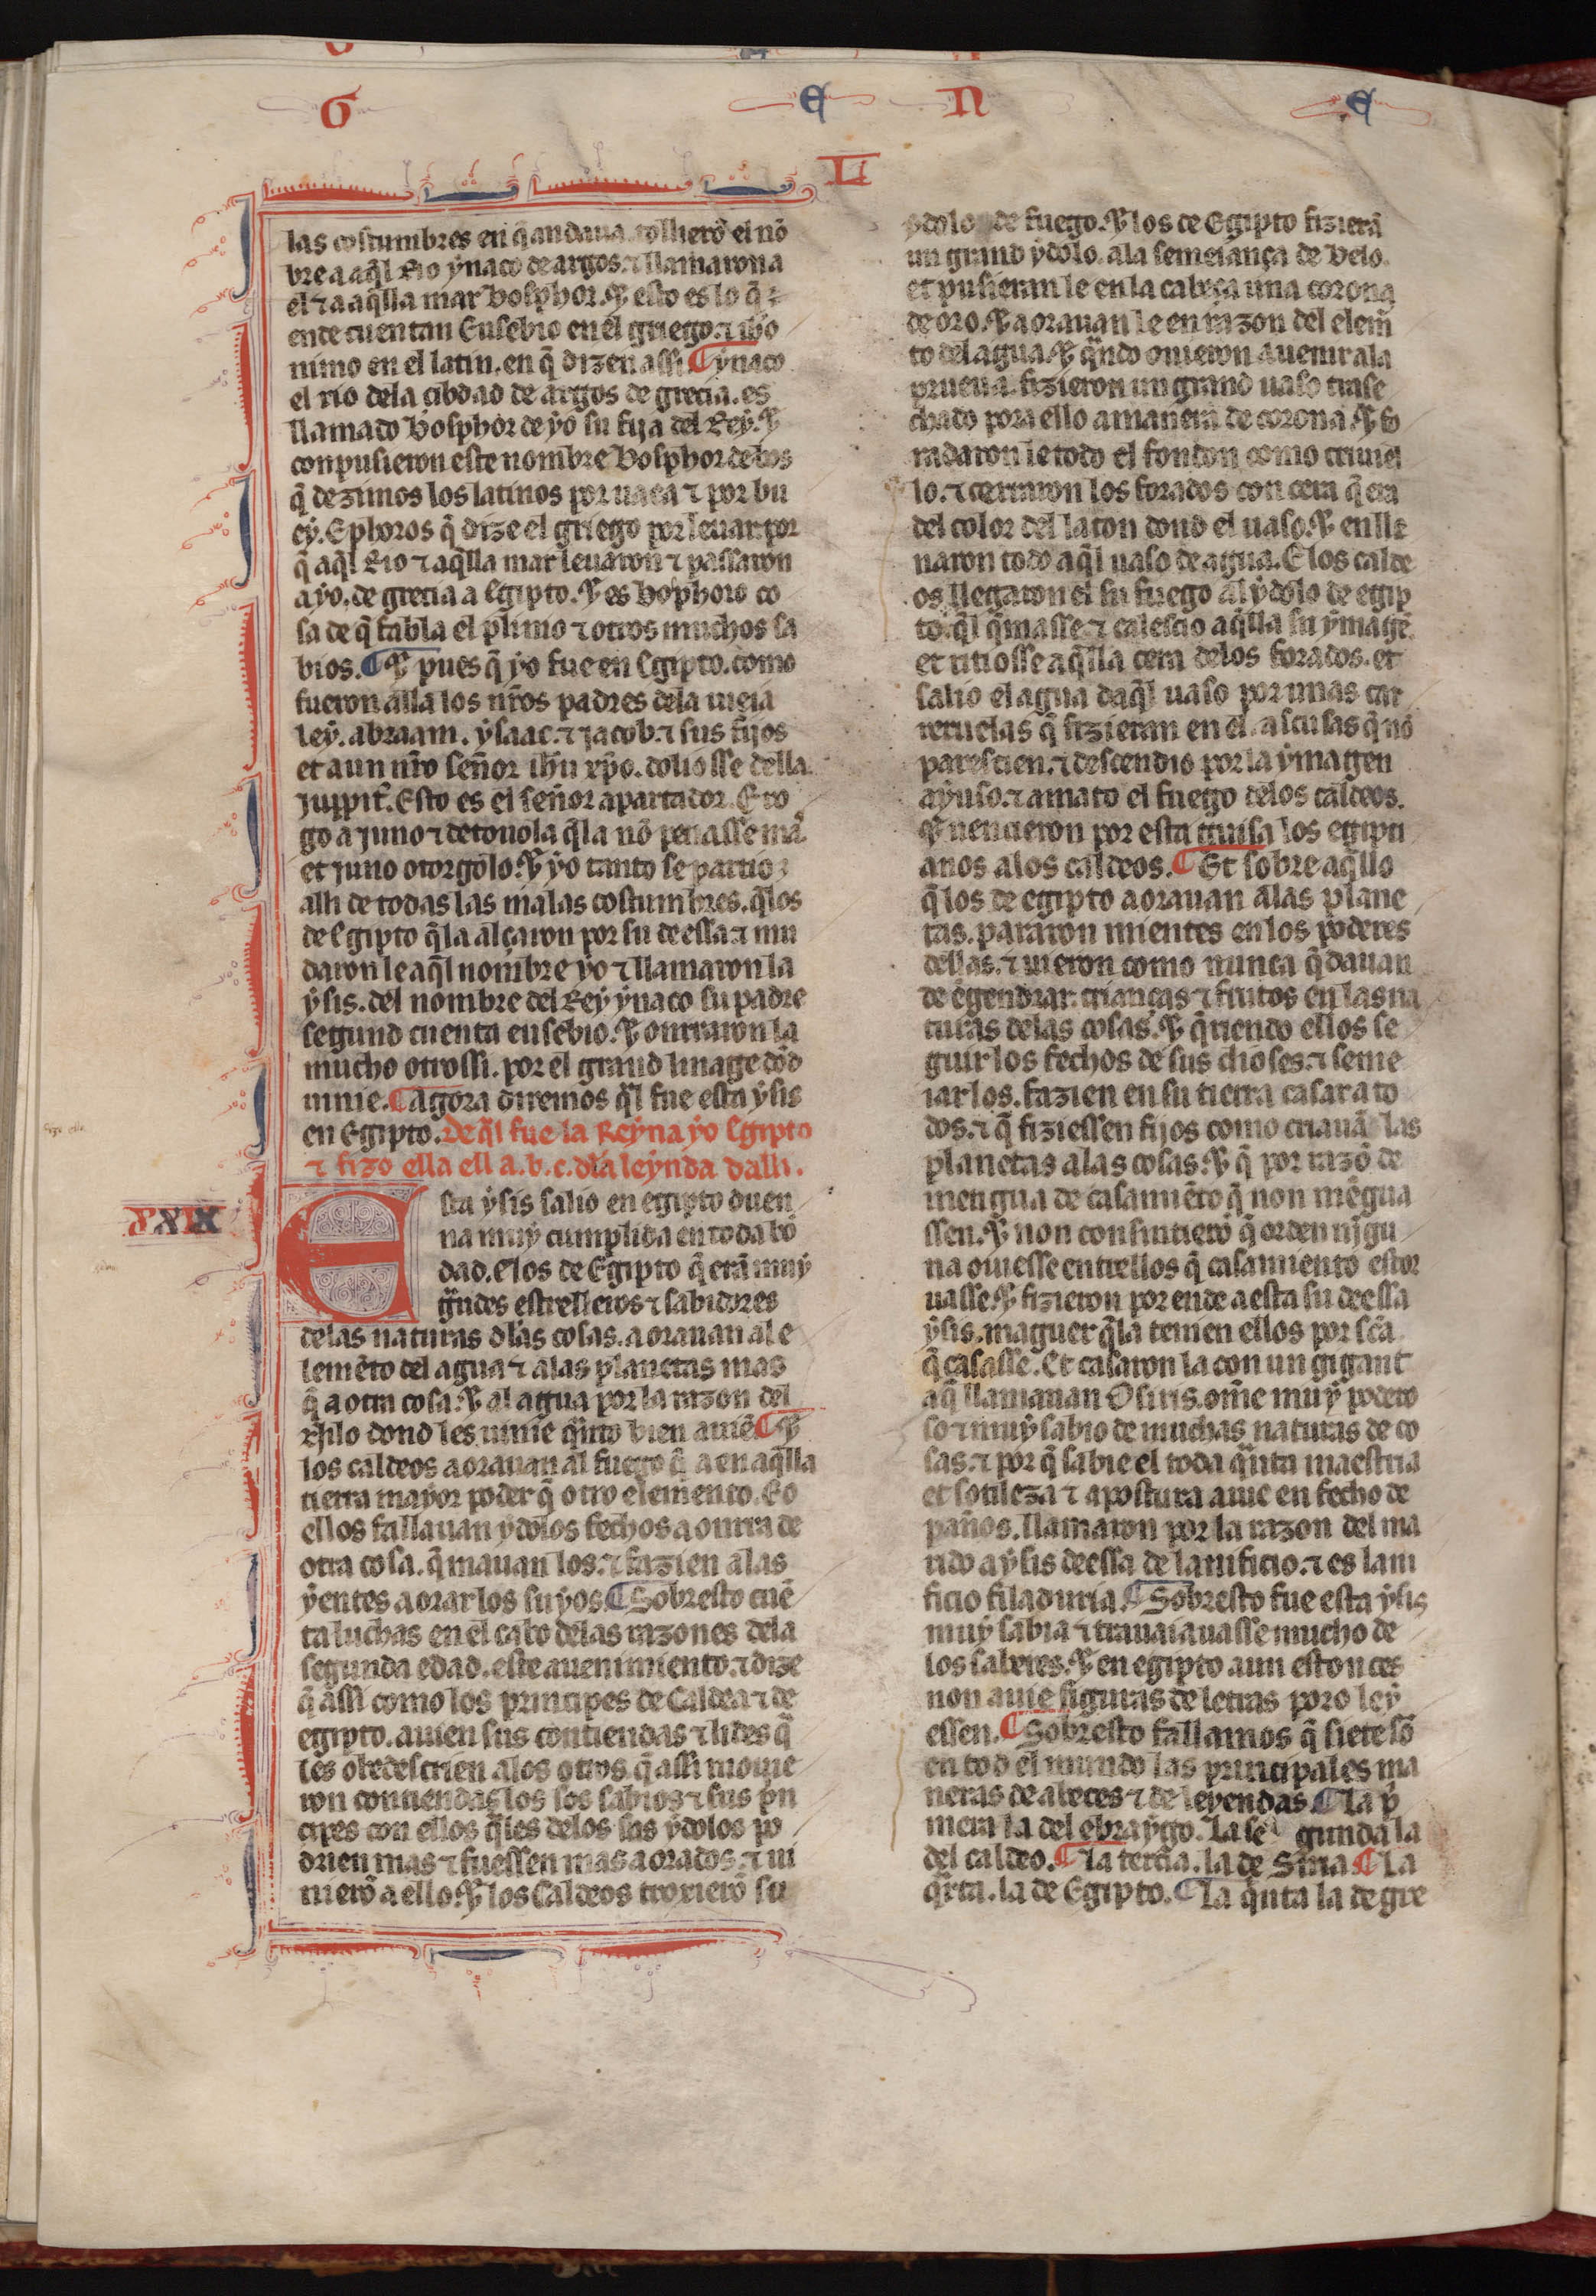 G E N E
LI
las costumbres en q̃ andaua. tollierõ el nõ
bre a aq̃l Rio ẏnaco de argos. ⁊ llamaron a
el ⁊ a aq̃lla mar bosphor. Ꞇ esto es lo q̃
ende cuentan Eusebio en el griego. ⁊ iho
nimo en el latin. en q̃ dizen assi. ¶ ẏnaco
el rio dela cibdad de argos de grecia. es
llamado bosphor de ẏo su fija del Reẏ. Ꞇ
conpusieron este nombre bosphor de bos
q̃ dezimos los latinos por uaca ⁊ por bu
eẏ. E phoros q̃ dize el griego por leuar. por
q̃ aq̃l Rio ⁊ aq̃lla mar leuaron ⁊ passaron
a ẏo. de grecia a Egipto. Ꞇ es bosphoro co
sa de q̃ fabla el plinio ⁊ otros muchos sa
bios. ¶ Ꞇ pues q̃ ẏo fue en Egipto. como
fueron alla los nr̃os padres dela uieia
leẏ. abraam. ẏsaac. ⁊ jacob. ⁊ sus fijos
et aun nr̃o señor ihũ xp̃o. doliosse della
juppit̃. Esto es el señor apartador. E ro
go a juno ⁊ detouola q̃la nõ penasse mas̃
et juno otorgolo. Ꞇ ẏo tanto se partio
alli de todas las malas costumbres. q̃los
de Egipto q̃la alçaron por su deessa. ⁊ mu
daron le aq̃l nombre ẏo ⁊ llamaron la
ẏsis. del nombre del Reẏ ẏnaco su padre
segund cuenta eusebio. Ꞇ onrraron la
mucho otrossi. por el grand linage dõd
uinie. ¶ Agora diremos q̃l fue esta ẏsis
en Egipto. De q̃l fue la Reẏna ẏo Egipto
⁊ fizo ella ell a.b.c. dla leẏnda dalli.
XXIX
Esta ẏsis salio en egipto duen
na muẏ cumplida en toda bõ
dad. E los de Egipto q̃ erã muẏ
g̃ndes estrelleros ⁊ sabidores
delas naturas dlas cosas. aorauan al e
lemẽto del agua ⁊ alas planetas mas
q̃ a otra cosa. Ꞇ al agua por la razon del
Nilo dond les uinie q̃nto bien auiẽ. ¶ Ꞇ
los caldeos aorauan al fuego q̃ a en aq̃lla
tierra mayor poder q̃ otro elemento. Eo
ellos fallauan ẏdolos fechos a onrra de
otra cosa. q̃mauan los. ⁊ fazien alas
ẏentes aorar los suẏos. ¶ Sobresto cuẽ
ta luchas en el cabo delas razones dela
segunda edad. este auenimiento. ⁊ dize
q̃ assi como los principes de Caldea ⁊ de
egipto. auien sus contiendas ⁊ lides q̃
les obedescrien alos otros. q̃ assi mouie
ron contiendas los sos sabios ⁊ sus pñ
cipes con ellos q̃les delos sus ẏdolos po
drien mas ⁊ fuessen mas aorados. ⁊ ui
nierõ a ello. Ꞇ los Caldeos troxierõ su
ẏdolo de fuego. Ꞇ los de Egipto fizierã
un grand ẏdolo. ala semeiança de belo.
et pusieran le en la cabeça una corona
de oro. Ꞇ aorauan le en razon del elem̃
to del agua. Ꞇ q̃ndo ouieron a uenir ala
prueua. fizieron un grand uaso trase
chado pora ello a manera de corona. Ꞇ fo
radaron le todo el fondon como criuiel
lo. ⁊ cerraron los forados con cera q̃ era
del color del laton dond el uaso. Ꞇ enlle
naron todo aq̃l uaso de agua. E los calde
os llegaron el su fuego al ẏdolo de egip
to. q̃l q̃masse. ⁊ calescio aq̃lla su ẏmagẽ
et ritiosse aq̃lla cera delos forados. et
salio el agua daq̃l uaso por unas car
reruelas q̃ fizieran en el. ascusas q̃ nõ
parescien. ⁊ descendio por la ẏmagen
aẏuso. ⁊ amato el fuego delos caldeos.
Ꞇ uencieron por esta guisa los egipti
anos alos caldeos. ¶ Et sobre aq̃llo
q̃los de egipto aorauan alas plane
tas. pararon mientes en los poderes
dellas. ⁊ uieron como nunca q̃dauan
de ẽgendrar. crianças ⁊ frutos en las na
turas delas cosas. Ꞇ q̃riendo ellos se
guir los fechos de sus dioses. ⁊ seme
iar los. fazien en su tierra casar a to
dos. ⁊ q̃ fiziessen fijos como criauã las
planetas alas cosas. Ꞇ q̃ por razõ de
mengua de casamiẽto q̃ non mẽgua
ssen. Ꞇ non consintierõ q̃ orden nĩgu
na ouiesse entrellos q̃ casamiento estor
uasse. Ꞇ fizieron por ende a esta su deessa
ẏsis. maguer q̃la temien ellos por sc̃a
q̃ casasse. Et casaron la con un gigant
aq̃ llamauan Osiris. om̃e muẏ podero
so ⁊ muẏ sabio de muchas naturas de co
sas. ⁊ por q̃ sabie el toda q̃nta maestria
et sotileza ⁊ apostura auie en fecho de
paños. llamaron por la razon del ma
rido a ẏsis deessa de lanificio. ⁊ es lani
ficio filaduria. ¶ Sobresto fue esta ẏsis
muẏ sabia ⁊ trauaiauasse mucho de
los saberes. Ꞇ en egipto aun estonces
non auie figuras de letras poro leẏ
essen. ¶ Sobresto fallamos q̃ siete sõ
en tod el mundo las principales ma
neras de abeces ⁊ de leyendas. ¶ La p̃
mera la del ebraygo. La se gunda la
del caldeo. ¶ La tercia. la de Siria ¶ La
q̃rta. la de Egipto. ¶ La q̃nta la de gre